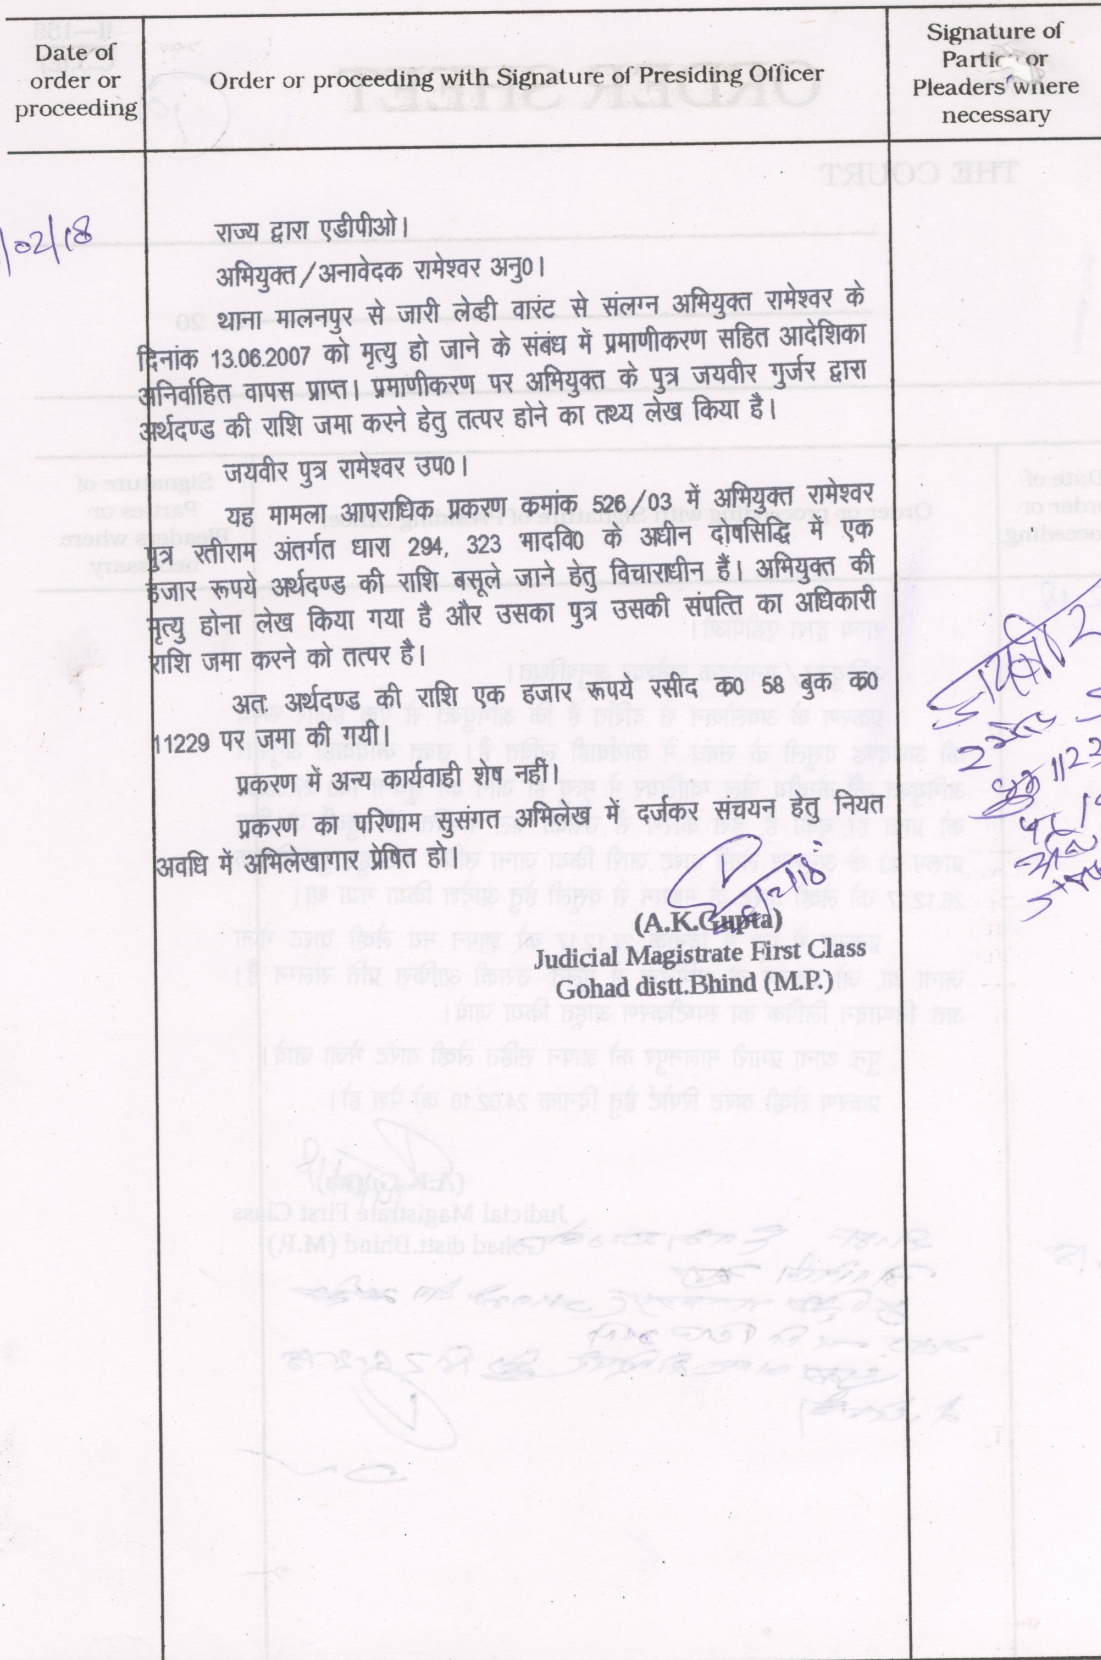 Date of
order or
proceeding
Order or proceeding with Signature of Presiding Officer
Signature of
Parties or
Pleaders where
necessary
/02/18
राज्य द्वारा एडीपीओ।
अभियुक्त/अनावेदक रामेश्वर अनु0।
थाना मालनपुर से जारी लेव्ही वारंट से संलग्न अभियुक्त रामेश्वर के
दिनांक 13.06.2007 को मृत्यु हो जाने के संबंध में प्रमाणीकरण सहित आदेशिका
अनिर्वाहित वापस प्राप्त। प्रमाणीकरण पर अभियुक्त के पुत्र जयवीर गुर्जर द्वारा
अर्थदण्ड की राशि जमा करने हेतु तत्पर होने का तथ्य लेख किया है।
जयवीर पुत्र रामेश्वर उप0।
यह मामला आपराधिक प्रकरण कमांक 526/03 में अभियुक्त रामेश्वर
पुत्र रतीराम अंतर्गत धारा 294, 323 भादवि0 के अधीन दोषसिद्धि में एक
हजार रूपये अर्थदण्ड की राशि बसूले जाने हेतु विचाराधीन है। अभियुक्त की
मृत्यु होना लेख किया गया है और उसका पुत्र उसकी संपत्ति का अधिकारी
राशि जमा करने को तत्पर है।
अतः अर्थदण्ड की राशि एक हजार रूपये रसीद क0 58 बुक क0
11229 पर जमा की गयी।
प्रकरण में अन्य कार्यवाही शेष नहीं।
प्रकरण का परिणाम सुसंगत अभिलेख में दर्जकर संचयन हेतु नियत
अवधि में अभिलेखागार प्रेषित हो।
(A.K.Gupta)
Judicial Magistrate First Class
Gohad distt.Bhind (M.P.)